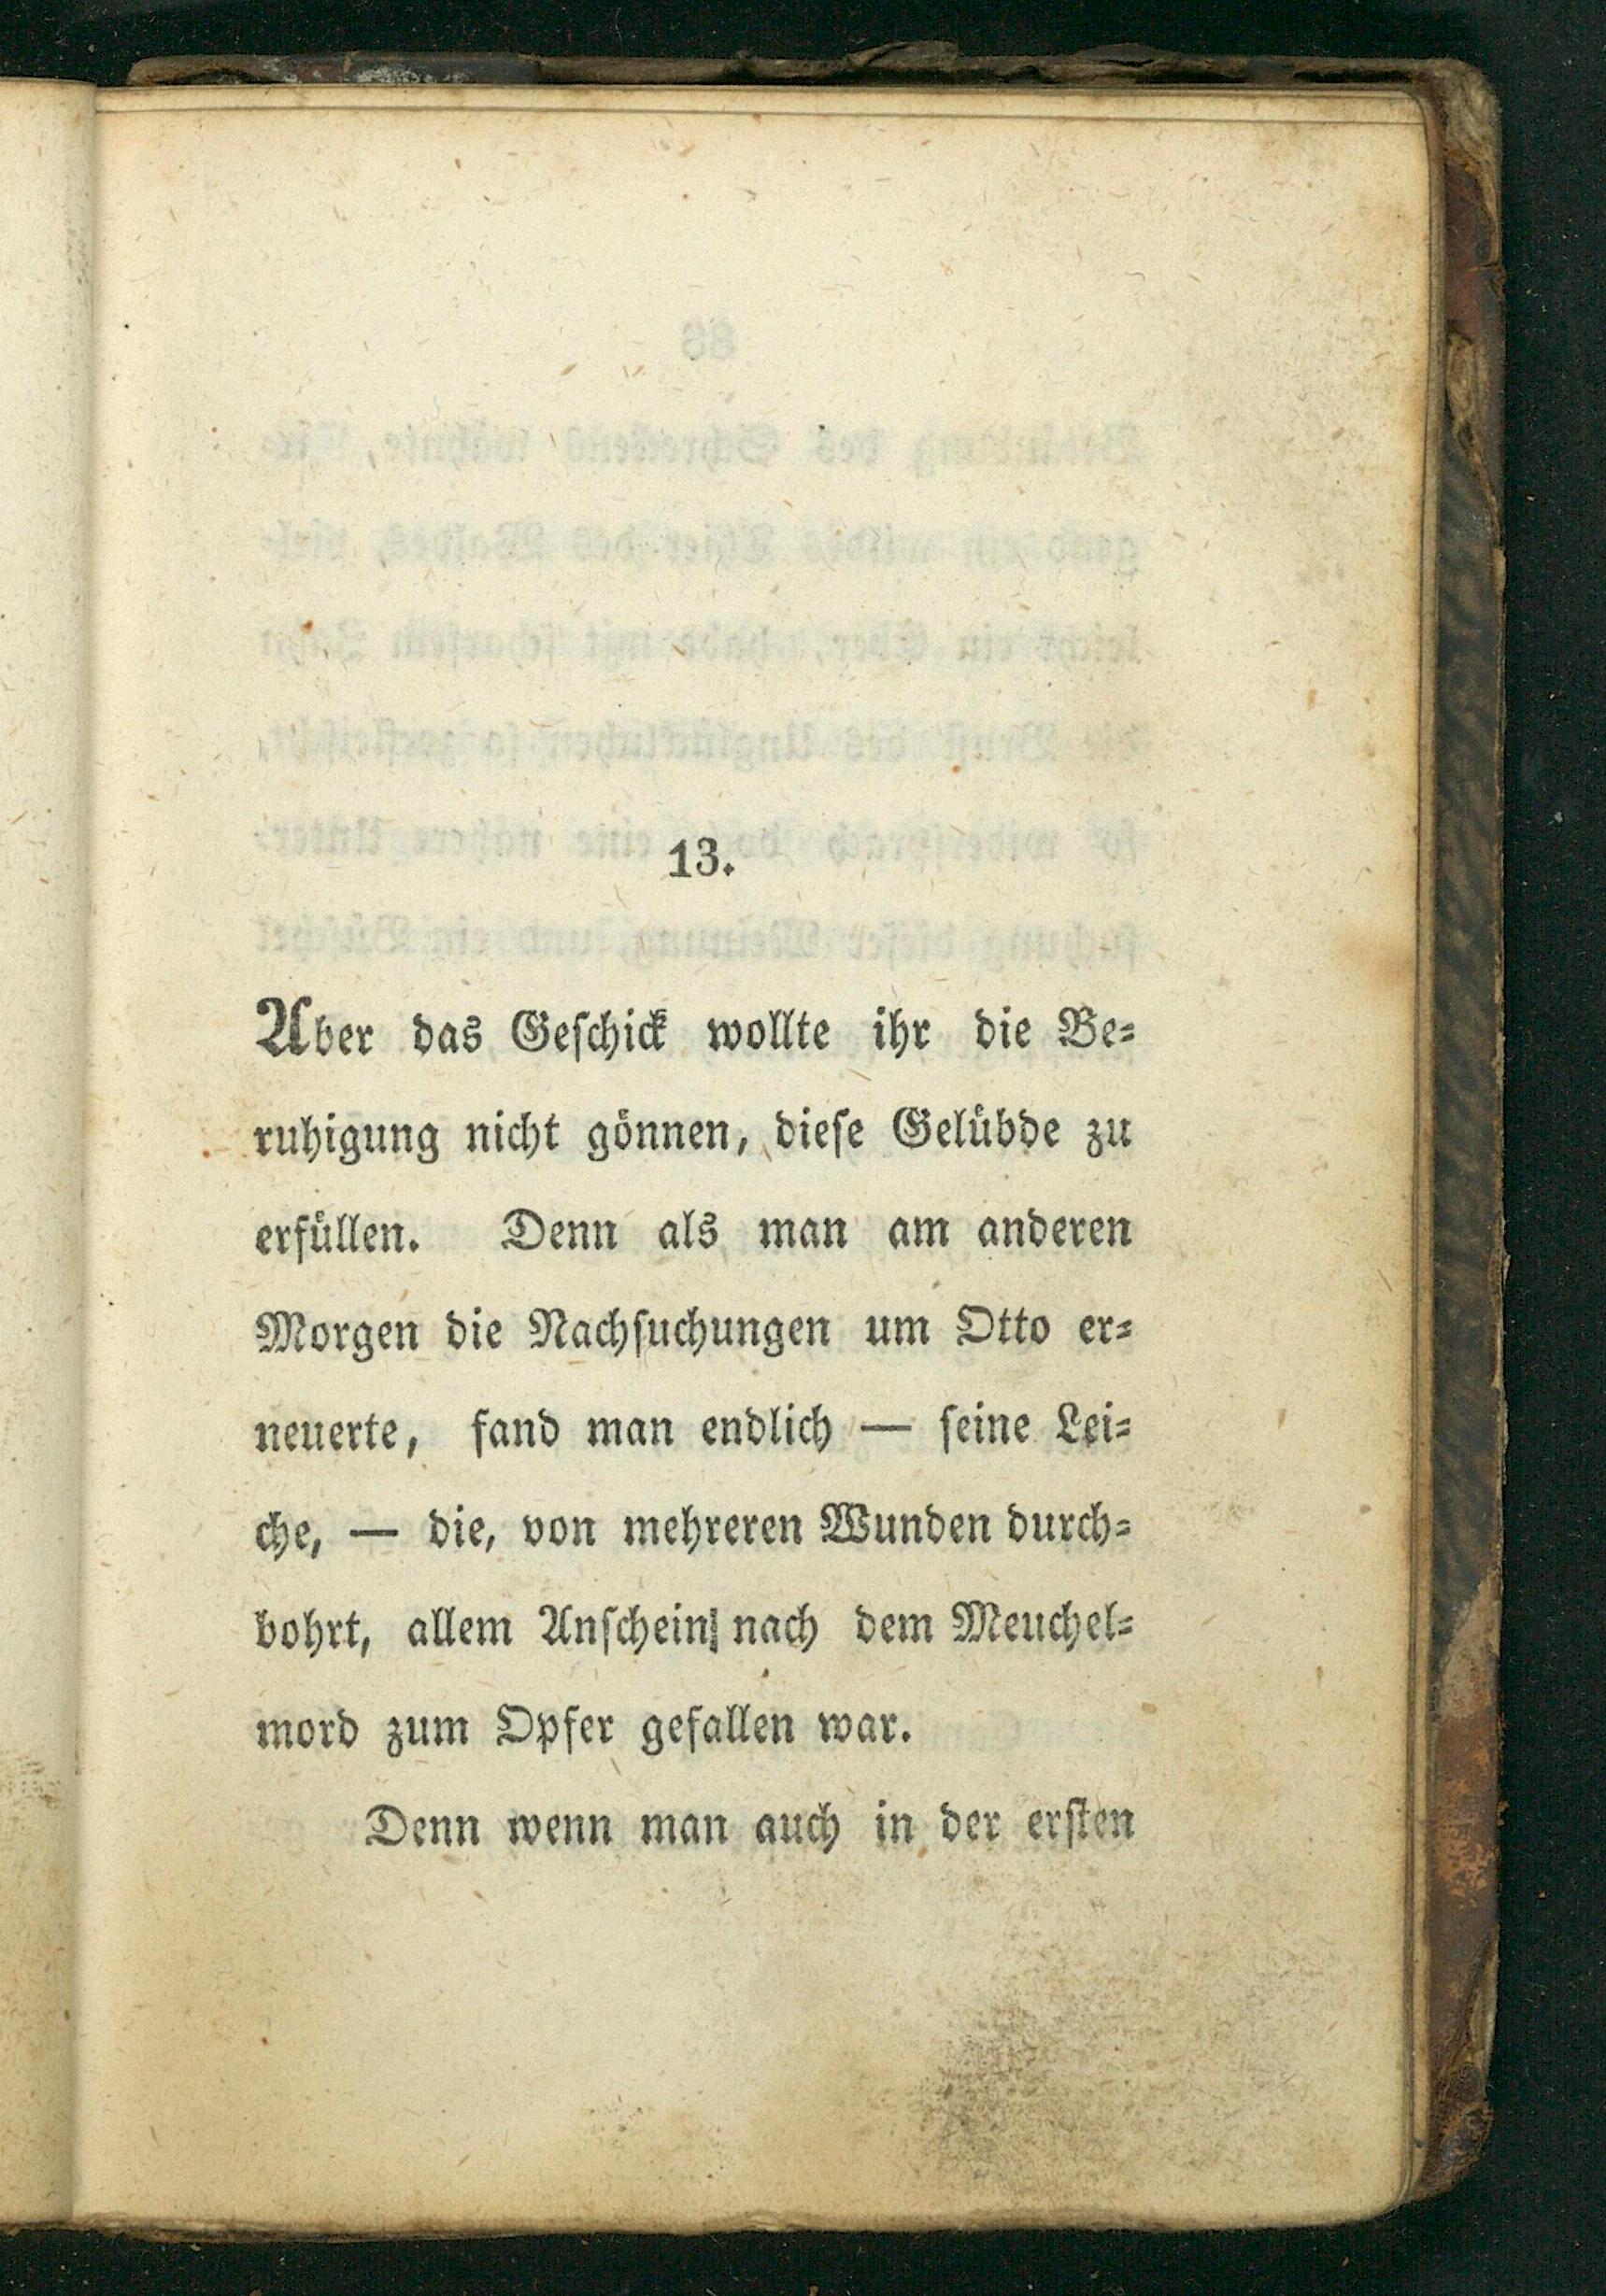 13.
Aber das Geſchick wollte ihr die Be⸗
ruhigung nicht gönnen, dieſe Gelübde zu
erfüllen. Denn als man am anderen
Morgen die Nachſuchungen um Otto er⸗
neuerte, fand man endlich — ſeine Lei⸗
che, — die, von mehreren Wunden durch⸗
bohrt, allem Anſchein nach dem Meuchel⸗
mord zum Opfer gefallen war.
Denn wenn man auch in der erſten